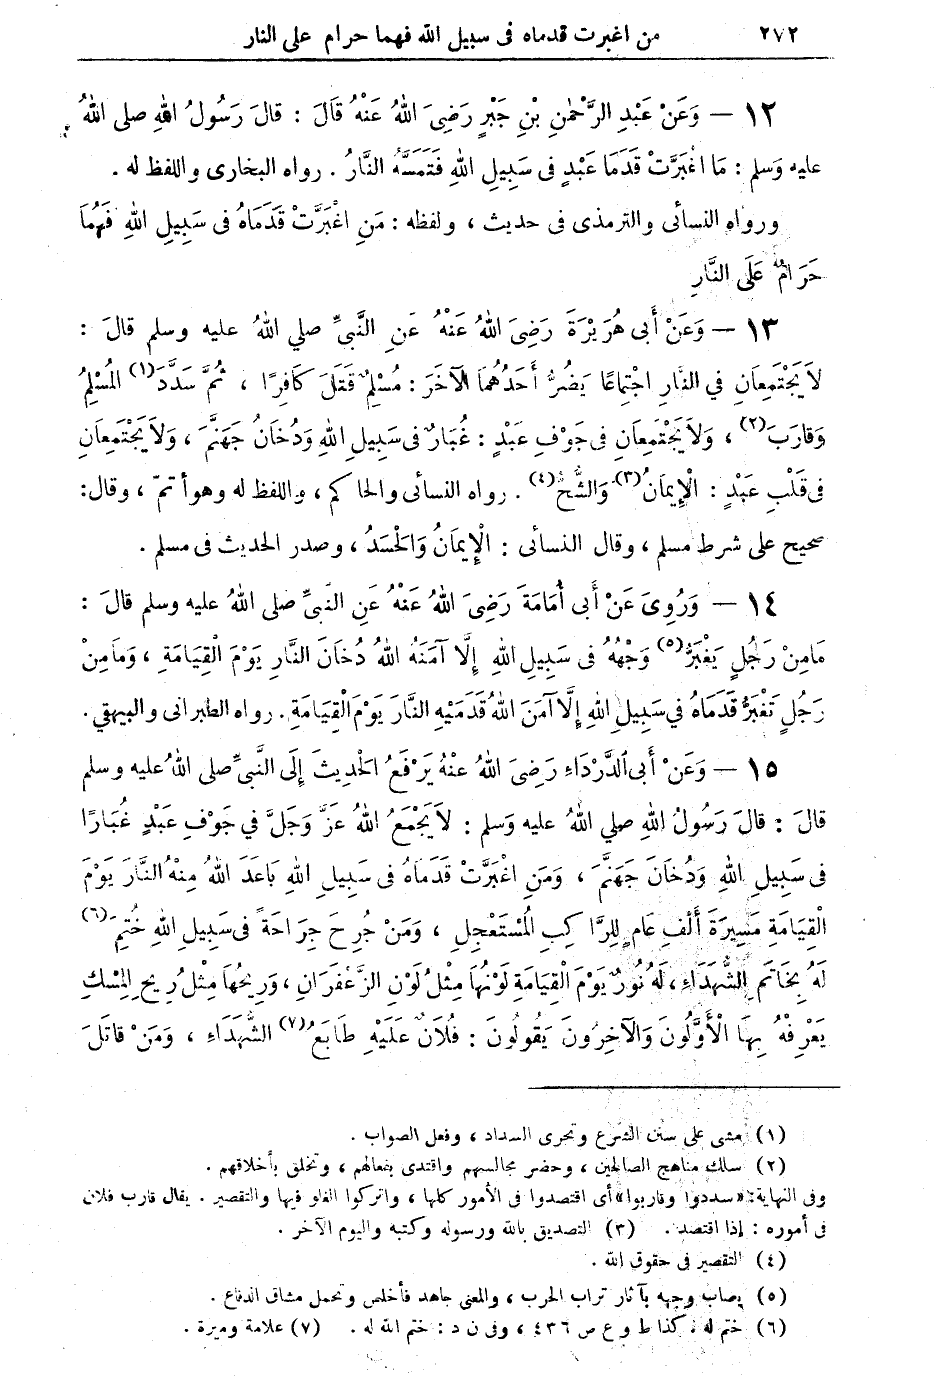 ٢٧٢ من اغبرت قدماه فى سبيل الله فهما حرام على النار
١٢ — وَعَنْ عَبْدِ الرَّحْمٰنِ بْنِ جَبْرٍ رَضِىَ اللهُ عَنْهُ قَالَ : قالَ رَسُولُ اللهِ صلى اللهُ
عليه وَسلم : مَا اغْبَرَّتْ قَدَمَا عَبْدٍ فى سَبِيلِ اللهِ فَتَمَسَّهُ النَّارُ . رواه البخارى واللفظ له .
ورواه النسائى والترمذى فى حديث ، ولفظه : مَنِ اغْبَرَّتْ قَدَمَاهُ فى سَبِيلِ اللهِ فَهُمَا
حَرَامٌ عَلَى النَّارِ
١٣ — وَعَنْ أَبى هُرَيْرَةَ رَضِىَ اللهُ عَنْهُ عَنِ النَّبىِّ صلي اللهُ عليه وسلم قالَ :
لاَ يَجْتَمِعَانِ في النَّارِ اجْتِمَاعًا يَضُرُّ أَحَدُهُمَا الآخَرَ : مُسْلِمٌ قَتَلَ كَافِرًا ، ثُمَّ سَدَّدَ (١) المُسْلِمُ
وَقَارَبَ (٢) ، وَلاَ يَجْتَمِعَانِ فى جَوْفِ عَبْدٍ : غُبَارٌ فى سَبِيلِ اللهِ وَدُخَانُ جَهَنَّمَ ، وَلاَ يَجْتَمِعَانِ
فى قَلْبِ عَبْدٍ : الْإِيمَانُ (٣) وَالشُّحُّ (٤) . رواه النسائى والحاكم ، واللفظ له وهو أتمّ ، وقال:
صحيح على شرط مسلم ، وقال النسائى : الْإِيمَانُ وَالحَسَدُ ، وصدر الحديث فى مسلم .
١٤ — وَرُوِىَ عَنْ أَبى أُمَامَةَ رَضِىَ اللهُ عَنْهُ عَنِ النَّبىِّ صلى اللهُ عليه وسلم قالَ :
مَامِنْ رَجُلٍ يَغْبَرُّ (٥) وَجْهُهُ فى سَبِيلِ اللهِ إِلَّا آمَنَهُ اللهُ دُخَانَ النَّارِ يَوْمَ الْقِيَامَةِ ، وَمَامِنْ
رَجُلٍ تَغْبَرُّ قَدَمَاهُ في سَبِيلِ اللهِ إِلَّا آمَنَ اللهُ قَدَمَيْهِ النَّارَ يَوْمَ الْقِيَامَةِ . رواه الطبرانى والبيهقي .
١٥ — وَعَنْ أَبى الدَّرْدَاءِ رَضِىَ اللهُ عَنْهُ يَرْفَعُ الحَدِيثَ إِلَى النَّبىِّ صلى اللهُ عليه وسلم
قالَ : قالَ رَسُولُ اللهِ صلي اللهُ عليه وَسلم : لاَ يَجْمَعُ اللهُ عَزَّ وَجَلَّ في جَوْفِ عَبْدٍ غُبَارًا
فى سَبِيلِ اللهِ وَدُخَانَ جَهَنَّمَ ، وَمَنِ اغْبَرَّتْ قَدَمَاهُ فى سَبِيلِ اللهِ بَاعَدَ اللهُ مِنْهُ النَّارَ يَوْمَ
الْقِيَامَةِ مَسِيرَةَ أَلْفِ عَامٍ لِلرَّاكِبِ المُسْتَعْجِلِ ، وَمَنْ جُرِحَ جِرَاحَةً فى سَبِيلِ اللهِ خُتِمَ (٦)
لَهُ بِخَاتَمِ الشُّهَدَاءِ ، لَهُ نُورٌ يَوْمَ الْقِيَامَةِ لَوْنُهَا مِثْلُ لَوْنِ الزَّعْفَرَانِ ، وَرِيحُهَا مِثْلُ رِيحِ المِسْكِ
يَعْرِفُهُ بِهَا الْأَوَّلُونَ وَالْآخِرُونَ يَقُولُونَ : فُلَانٌ عَلَيْهِ طَابَعُ (٧) الشُّهَدَاءِ ، وَمَنْ قَاتَلَ
(١) مشى على سنن الشرع وتحرى السداد ، وفعل الصواب .
(٢) سلك مناهج الصالحين ، وحضر مجالسهم واقتدى بفعالهم ، وتخلق بأخلاقهم .
وفى النهاية: «سددوا وقاربوا» أى اقتصدوا فى الأمور كلها ، واتركوا الغلو فيها والتقصير . يقال قارب فلان
فى أموره : إذا اقتصد . (٣) التصديق بالله ورسوله وكتبه واليوم الآخر .
(٤) التقصير فى حقوق الله .
(٥) يصاب وجهه بآثار تراب الحرب ، والمعنى جاهد فأخلص وتحمل مشاق الدفاع .
(٦) ختم له ، كذا ط و ع ص ٤٣٦ ، وفى ن د : ختم الله له . (٧) علامة وميزة .